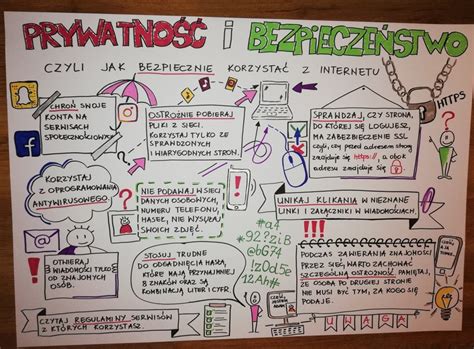 PRYWATNOŚĆ i BEZPIECZEŃSTWO
CZYLI JAK BEZPIECZNIE KORZYSTAĆ Z INTERNETU
CHROŃ SWOJE
KONTA NA
SERWISACH
SPOŁECZNOŚCIOWYCH.
OSTROŻNIE POBIERAJ
PLIKI Z SIECI.
KORZYSTAJ TYLKO ZE
SPRAWDZONYCH
I WIARYGODNYCH STRON.
HTTPS
SPRAWDZAJ, CZY STRONA,
DO KTÓREJ SIĘ LOGUJESZ,
MA ZABEZPIECZENIE SSL
czyli, czy przed adresem strony
znajduje się https://, a obok
adresu znajduje się
KORZYSTAJ
Z OPROGRAMOWANIA
ANTYWIRUSOWEGO.
NIE PODAWAJ W SIECI
DANYCH OSOBOWYCH,
NUMERU TELEFONU,
HASEŁ, NIE WYSYŁAJ
SWOICH ZDJĘĆ.
!
UNIKAJ KLIKANIA W NIEZNANE
LINKI I ZAŁĄCZNIKI W WIADOMOŚCIACH.
OTWIERAJ
WIADOMOŚCI TYLKO
OD ZNAJOMYCH
OSÓB.
STOSUJ TRUDNE
DO ODGADNIĘCIA HASŁA,
KTÓRE MAJĄ PRZYNAJMNIEJ
8 ZNAKÓW ORAZ SĄ
KOMBINACJĄ LITER I CYFR.
PODCZAS ZAWIERANIA ZNAJOMOŚCI
PRZEZ SIEĆ, WARTO ZACHOWAĆ
SZCZEGÓLNĄ OSTROŻNOŚĆ. PAMIĘTAJ,
ŻE OSOBA PO DRUGIEJ STRONIE
NIE MUSI BYĆ TYM, ZA KOGO SIĘ
PODAJE.
CZYTAJ REGULAMINY SERWISÓW
Z KTÓRYCH KORZYSTASZ.
UWAGA